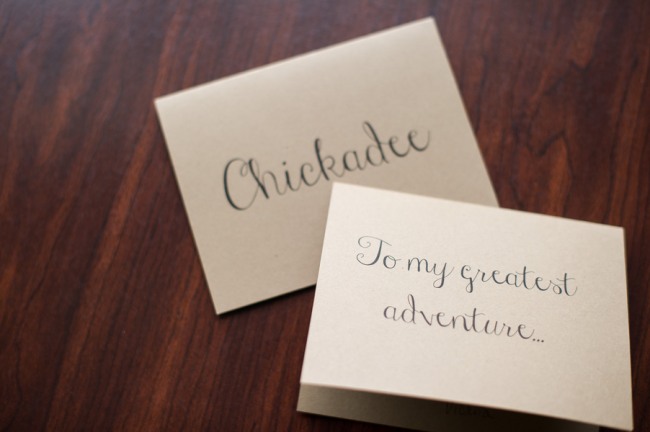 Chickadee
To my greatest
adventure...